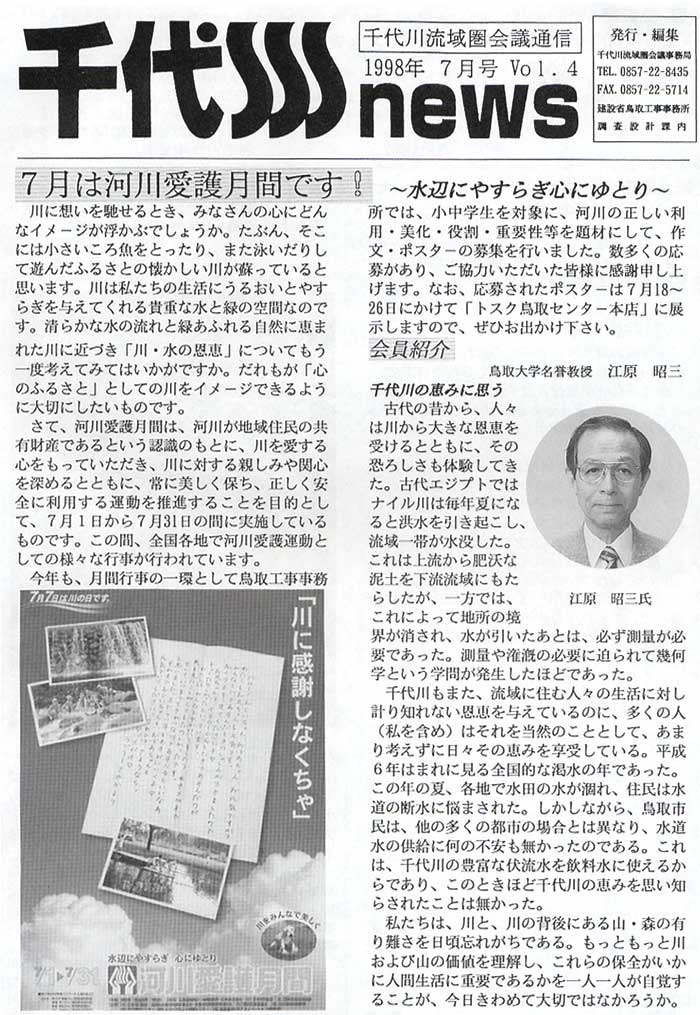 千代川news
千代川流域圏会議通信
1998年 7月号 Vol.4
発行・編集
千代川流域圏会議事務局
TEL. 0857-22-8435
FAX. 0857-22-5714
建設省鳥取工事事務所
調査設計課内
7月は河川愛護月間です!
川に想いを馳せるとき、みなさんの心にどん
なイメージが浮かぶでしょうか。たぶん、そこ
には小さいころ魚をとったり、また泳いだりし
て遊んだふるさとの懐かしい川が蘇っていると
思います。川は私たちの生活にうるおいとやす
らぎを与えてくれる貴重な水と緑の空間なので
す。清らかな水の流れと緑あふれる自然に恵ま
れた川に近づき「川・水の恩恵」についてもう
一度考えてみてはいかがですか。だれもが「心
のふるさと」としての川をイメージできるよう
に大切にしたいものです。
さて、河川愛護月間は、河川が地域住民の共
有財産であるという認識のもとに、川を愛する
心をもっていただき、川に対する親しみや関心
を深めるとともに、常に美しく保ち、正しく安
全に利用する運動を推進することを目的とし
て、7月1日から7月31日の間に実施している
ものです。この間、全国各地で河川愛護運動と
しての様々な行事が行われています。
今年も、月間行事の一環として鳥取工事事務
7月7日は川の日です。
「川に感謝しなくちゃ」
川をみんなで美しく
水辺にやすらぎ 心にゆとり
7/1▶7/31
河川愛護月間
～水辺にやすらぎ心にゆとり～
所では、小中学生を対象に、河川の正しい利
用・美化・役割・重要性等を題材にして、作
文・ポスターの募集を行いました。数多くの応
募があり、ご協力いただいた皆様に感謝申し上
げます。なお、応募されたポスターは7月18～
26日にかけて「トスク鳥取センター本店」に展
示しますので、ぜひお出かけ下さい。
会員紹介
鳥取大学名誉教授 江原 昭三
千代川の恵みに思う
古代の昔から、人々
は川から大きな恩恵を
受けるとともに、その
恐ろしさも体験してき
た。古代エジプトでは
ナイル川は毎年夏にな
ると洪水を引き起こし、
流域一帯が水没した。
これは上流から肥沃な
泥土を下流流域にもた
らしたが、一方では、
これによって地所の境
江原 昭三氏
界が消され、水が引いたあとは、必ず測量が必
要であった。測量や潅漑の必要に迫られて幾何
学という学問が発生したほどであった。
千代川もまた、流域に住む人々の生活に対し
計り知れない恩恵を与えているのに、多くの人
（私を含め）はそれを当然のこととして、あま
り考えずに日々その恵みを享受している。平成
6年はまれに見る全国的な渇水の年であった。
この年の夏、各地で水田の水が涸れ、住民は水
道の断水に悩まされた。しかしながら、鳥取市
民は、他の多くの都市の場合とは異なり、水道
水の供給に何の不安も無かったのである。これ
は、千代川の豊富な伏流水を飲料水に使えるか
らであり、このときほど千代川の恵みを思い知
らされたことは無かった。
私たちは、川と、川の背後にある山・森の有
り難さを日頃忘れがちである。もっともっと川
および山の価値を理解し、これらの保全がいか
に人間生活に重要であるかを一人一人が自覚す
ることが、今日きわめて大切ではなかろうか。